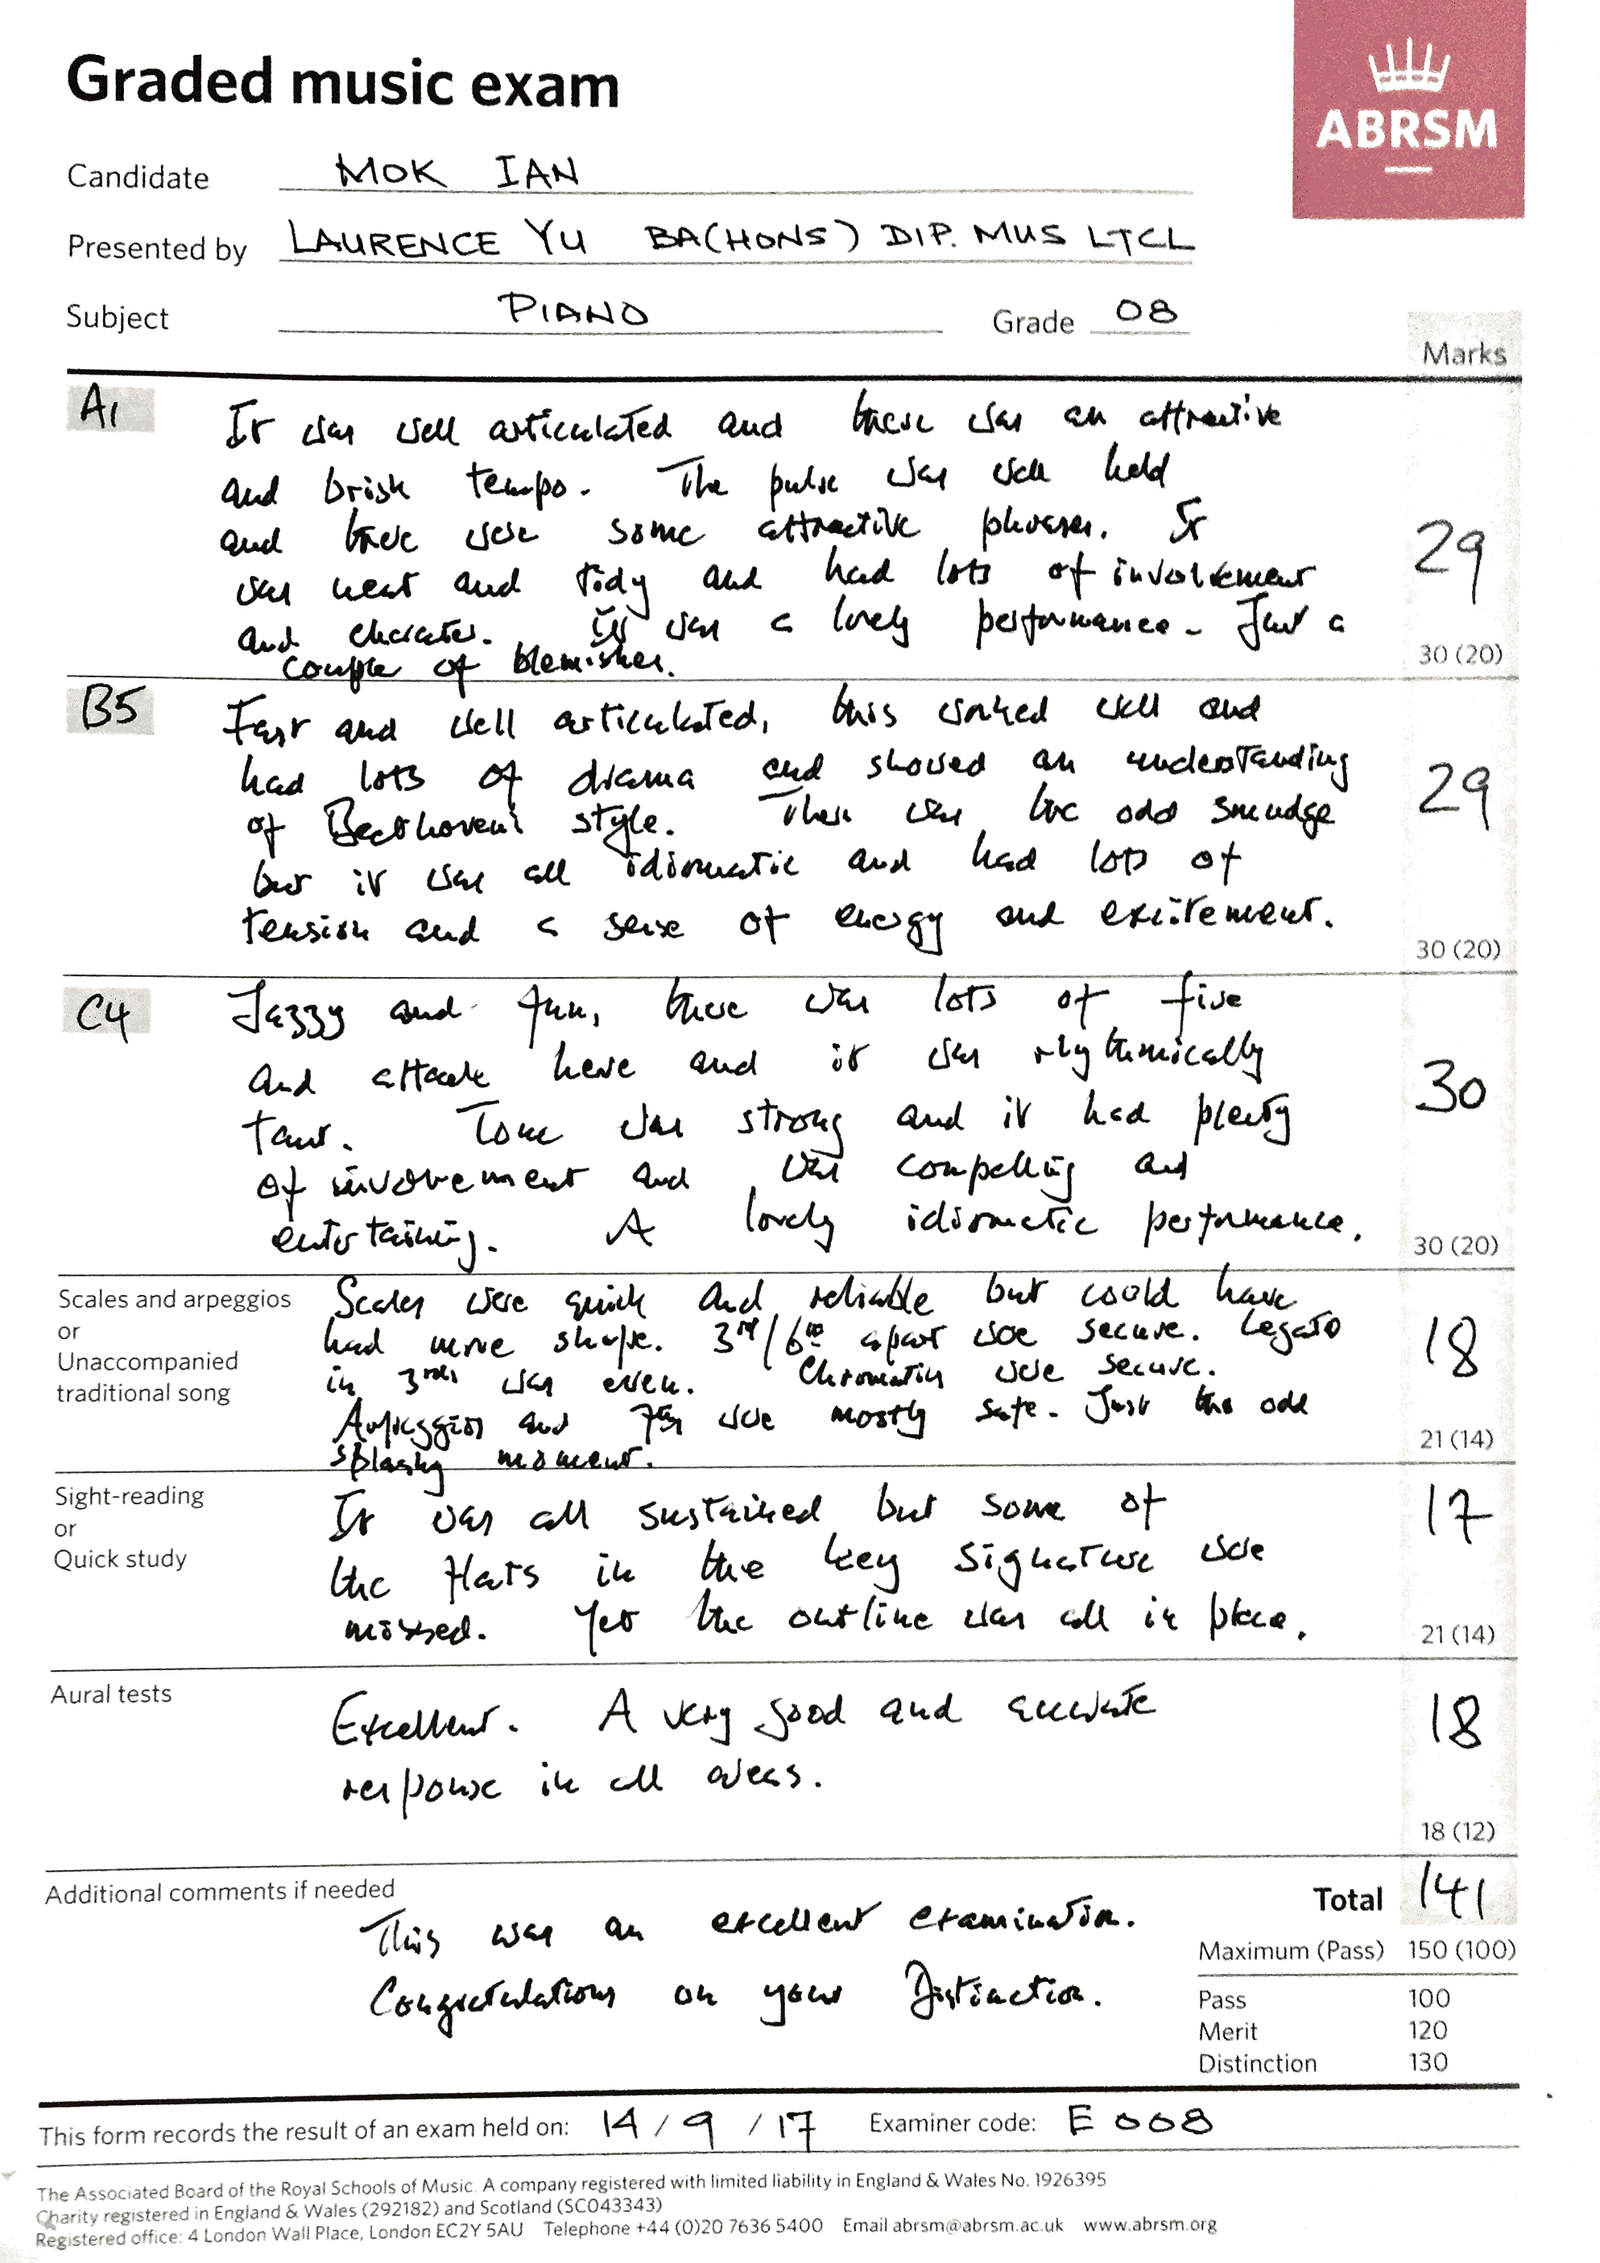 Graded music exam
ABRSM
Candidate MOK IAN
Presented by LAURENCE YU BA(HONS) DIP. MUS LTCL
Subject PIANO Grade 08
Marks
A1
It was well articulated and there was an attractive
and brisk tempo. The pulse was well held
and there were some attractive phrases. It
was neat and tidy and had lots of involvement
and character. It was a lovely performance. Just a
couple of blemishes.
29
30 (20)
B5
Fast and well articulated, this worked well and
had lots of drama and showed an understanding
of Beethoven's style. There was the odd smudge
but it was all idiomatic and had lots of
tension and a sense of energy and excitement.
29
30 (20)
C4
Jazzy and fun, there was lots of fire
and attack here and it was rhythmically
taut. Tone was strong and it had plenty
of involvement and was compelling and
entertaining. A lovely idiomatic performance.
30
30 (20)
Scales and arpeggios
or
Unaccompanied
traditional song
Scales were quick and reliable but could have
had more shape. 3rd/6th apart were secure. Legato
in 3rds was even. Chromatics were secure.
Arpeggios and 7ths were mostly safe. Just the odd
splashy moment.
18
21 (14)
Sight-reading
or
Quick study
It was all sustained but some of
the flats in the key signature were
missed. Yet the outline was all in place.
17
21 (14)
Aural tests
Excellent. A very good and accurate
response in all areas.
18
18 (12)
Additional comments if needed
This was an excellent examination.
Congratulations on your Distinction.
Total 141
Maximum (Pass) 150 (100)
Pass 100
Merit 120
Distinction 130
This form records the result of an exam held on: 14 / 9 / 17 Examiner code: E 008
The Associated Board of the Royal Schools of Music. A company registered with limited liability in England & Wales No. 1926395
Charity registered in England & Wales (292182) and Scotland (SC043343)
Registered office: 4 London Wall Place, London EC2Y 5AU Telephone +44 (0)20 7636 5400 Email abrsm@abrsm.ac.uk www.abrsm.org